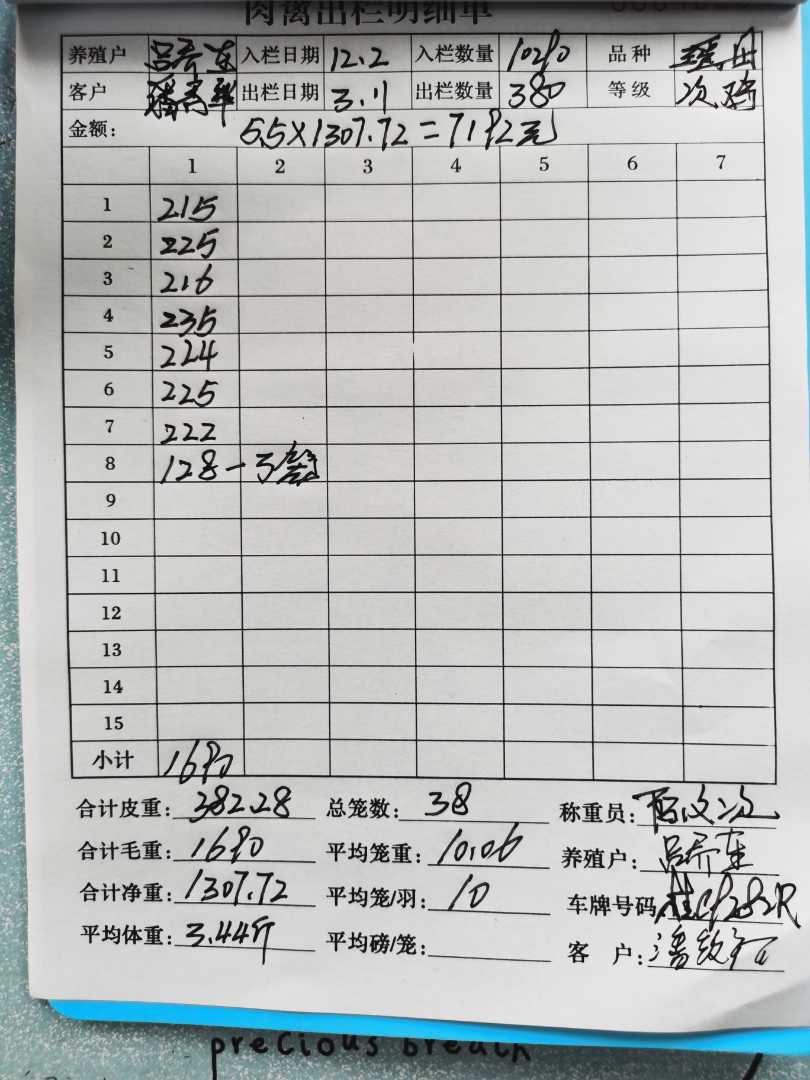 肉禽出栏明细单
养殖户 吕乔东 入栏日期 12.2 入栏数量 品种
客户 出栏日期 3.11 出栏数量 380 等级 次
金额: 5.5×1307.72=7192元
1 2 3 4 5 6 7
1 215
2 225
3 216
4 235
5 224
6 225
7 222
8 128-3笼
9
10
11
12
13
14
15
小计 1690
合计皮重: 382.28 总笼数: 38 称重员:
合计毛重: 1690 平均笼重: 10.06 养殖户: 吕乔东
合计净重: 1307.72 平均笼/羽: 10 车牌号码
平均体重: 3.44斤 平均磅/笼: 客 户:
precious breath